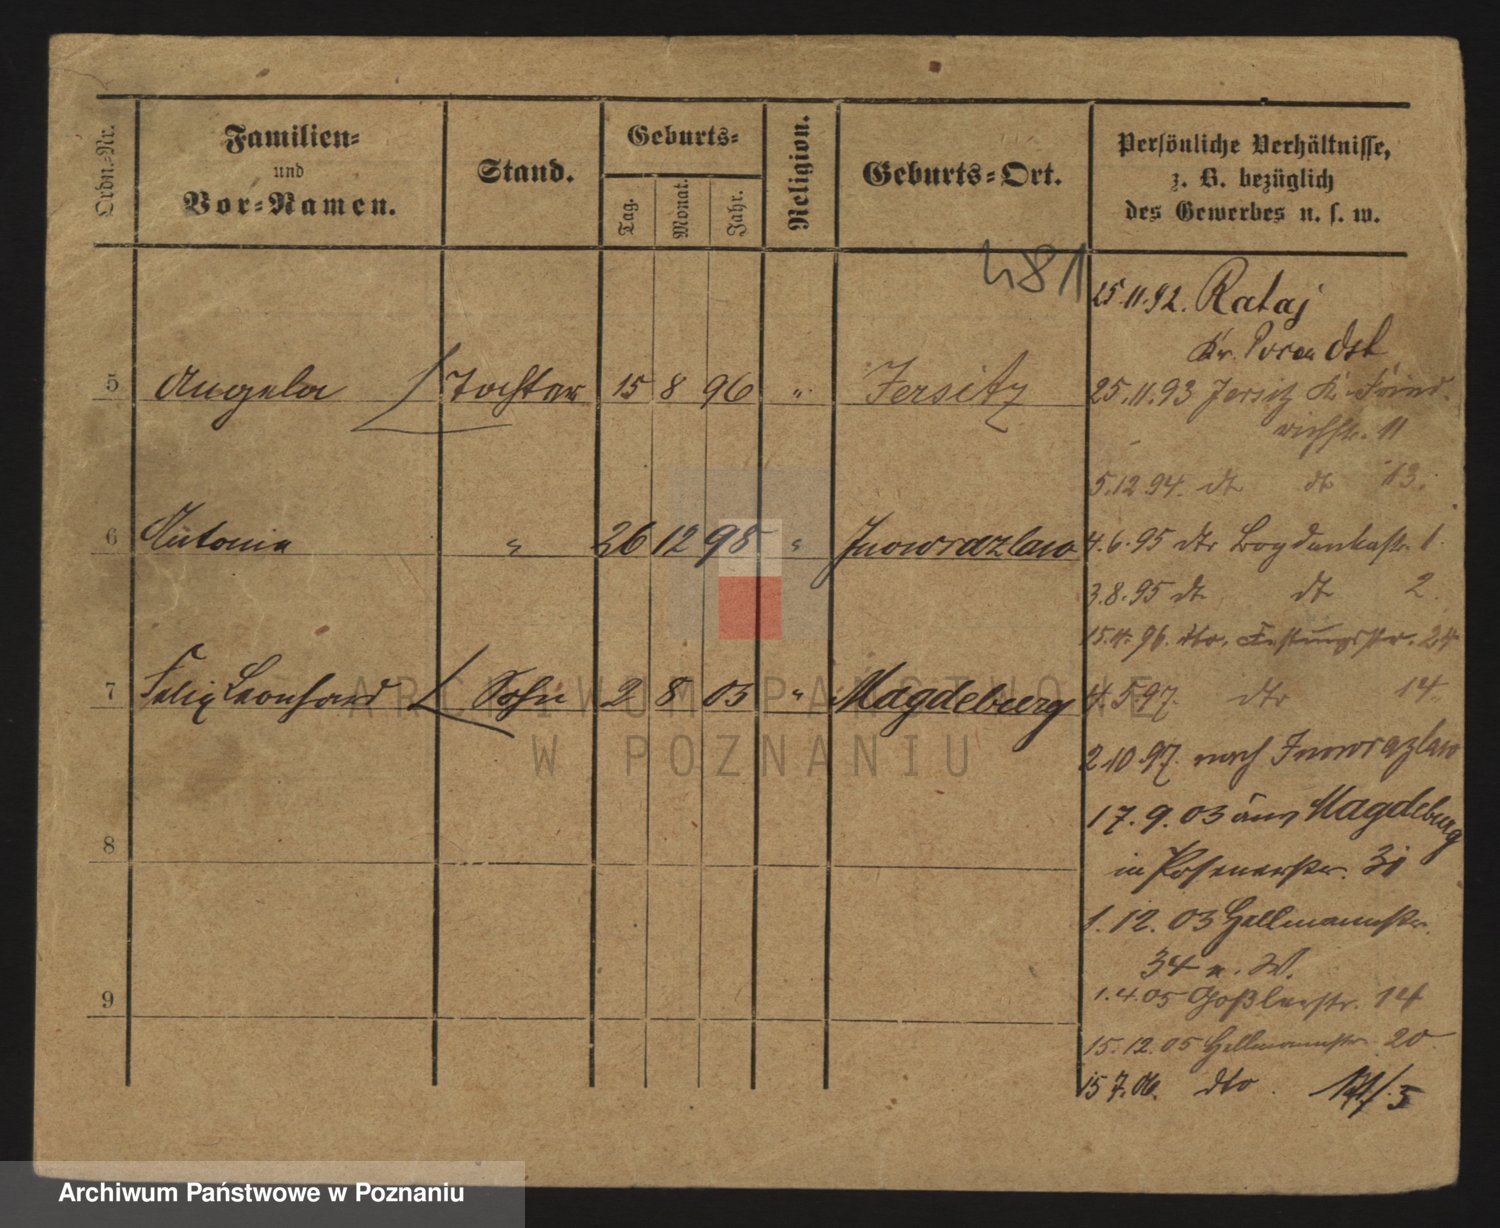 Ordn.-Nr.
Familien-
und
Vor-Namen.
Stand.
Geburts-
Tag.
Monat.
Jahr.
Religion.
Geburts-Ort.
Persönliche Verhältnisse,
z. B. bezüglich
des Gewerbes u. s. w.
481
5 Angela Tochter 15 8 96 " Jersitz
6 Antonie " 26 12 98 " Inowrazlaw
7 Felix Leonhard Sohn 2 8 03 " Magdeburg
8
9
25.11.92. Rataj
Kr. Posen Ost
25.11.93 Jersitz K. Fried-
richstr. 11
5.12.94. dt dt 13.
4.6.95 dto Bogdankastr. 1.
3.8.95 dt dt 2.
15.4.96. dto. Festungsstr. 24
4.5.97. dto 14.
2.10.97. nach Inowrazlaw
17.9.03 aus Magdeburg
in Posenerstr. 31
1.12.03 Hellmannstr.
34 n. W.
1.4.05 Goßlerstr. 14
15.12.05 Hellmannstr. 20.
15.7.06. dto.
ARCHIWUM PAŃSTWOWE
W POZNANIU
Archiwum Państwowe w Poznaniu